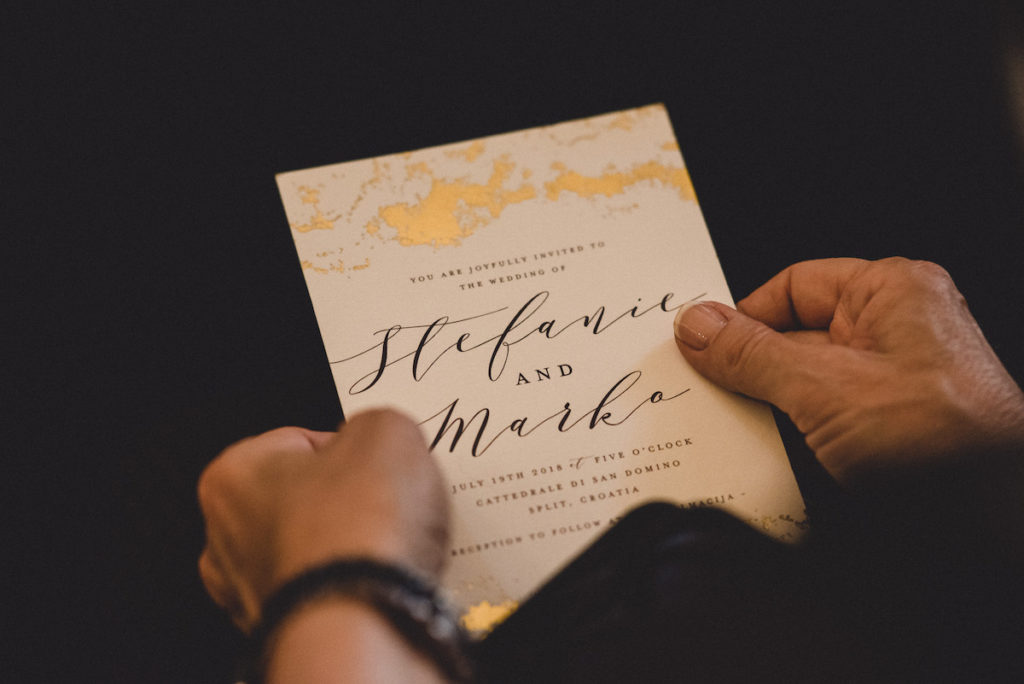 YOU ARE JOYFULLY INVITED TO
THE WEDDING OF
Stefanie
AND
Marko
JULY 19TH 2018 at FIVE O'CLOCK
CATTEDRALE DI SAN DOMINO
SPLIT, CROATIA
RECEPTION TO FOLLOW